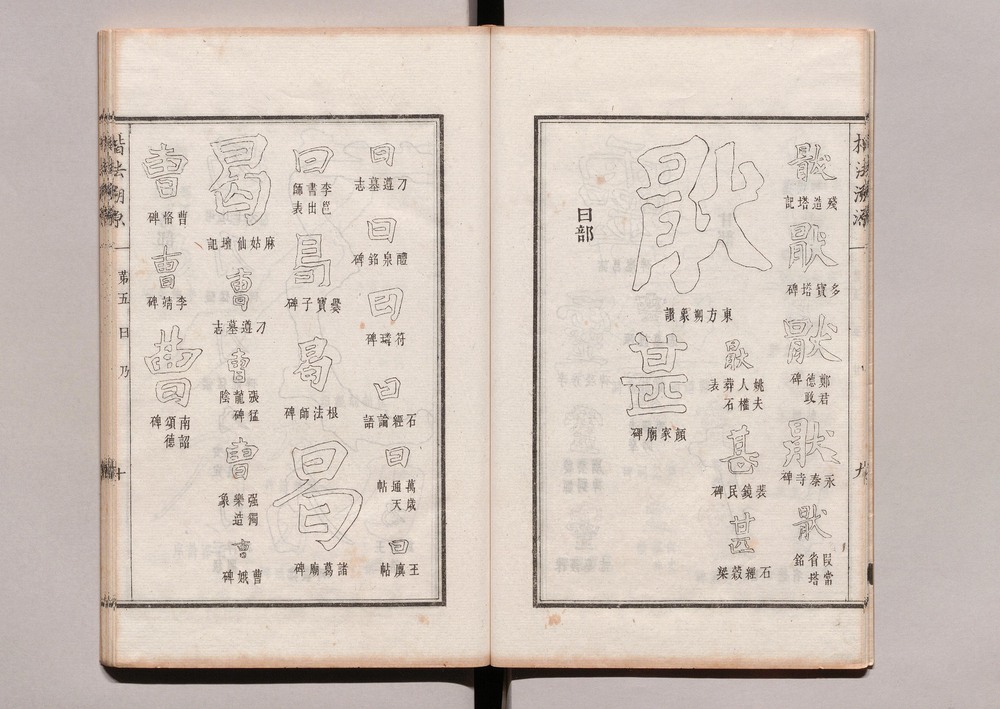 楷法溯源
九
猒
殘造塔記
猒
多寶塔碑
猒
鄭君德政碑
猒
永泰寺碑
猒
段常省塔銘
猒
東方朔象讚
猒
姚夫人權葬石表
甚
裴鏡民碑
甚
石經穀梁
甚
顏家廟碑
曰部
曰
刁遵墓志
曰
醴泉銘碑
曰
符璘碑
曰
石經論語
曰
萬歲通天帖
曰
王廙帖
曰
李邕書出師表
曷
爨寶子碑
曷
根法師碑
曷
諸葛廟碑
曷
麻姑仙壇記
曹
刁遵墓志
曹
張猛龍碑陰
曹
强獨樂造象
曹
曹娥碑
曹
曹恪碑
曹
李靖碑
曹
南詔德頌碑
楷法溯源
第五
曰
乃
十